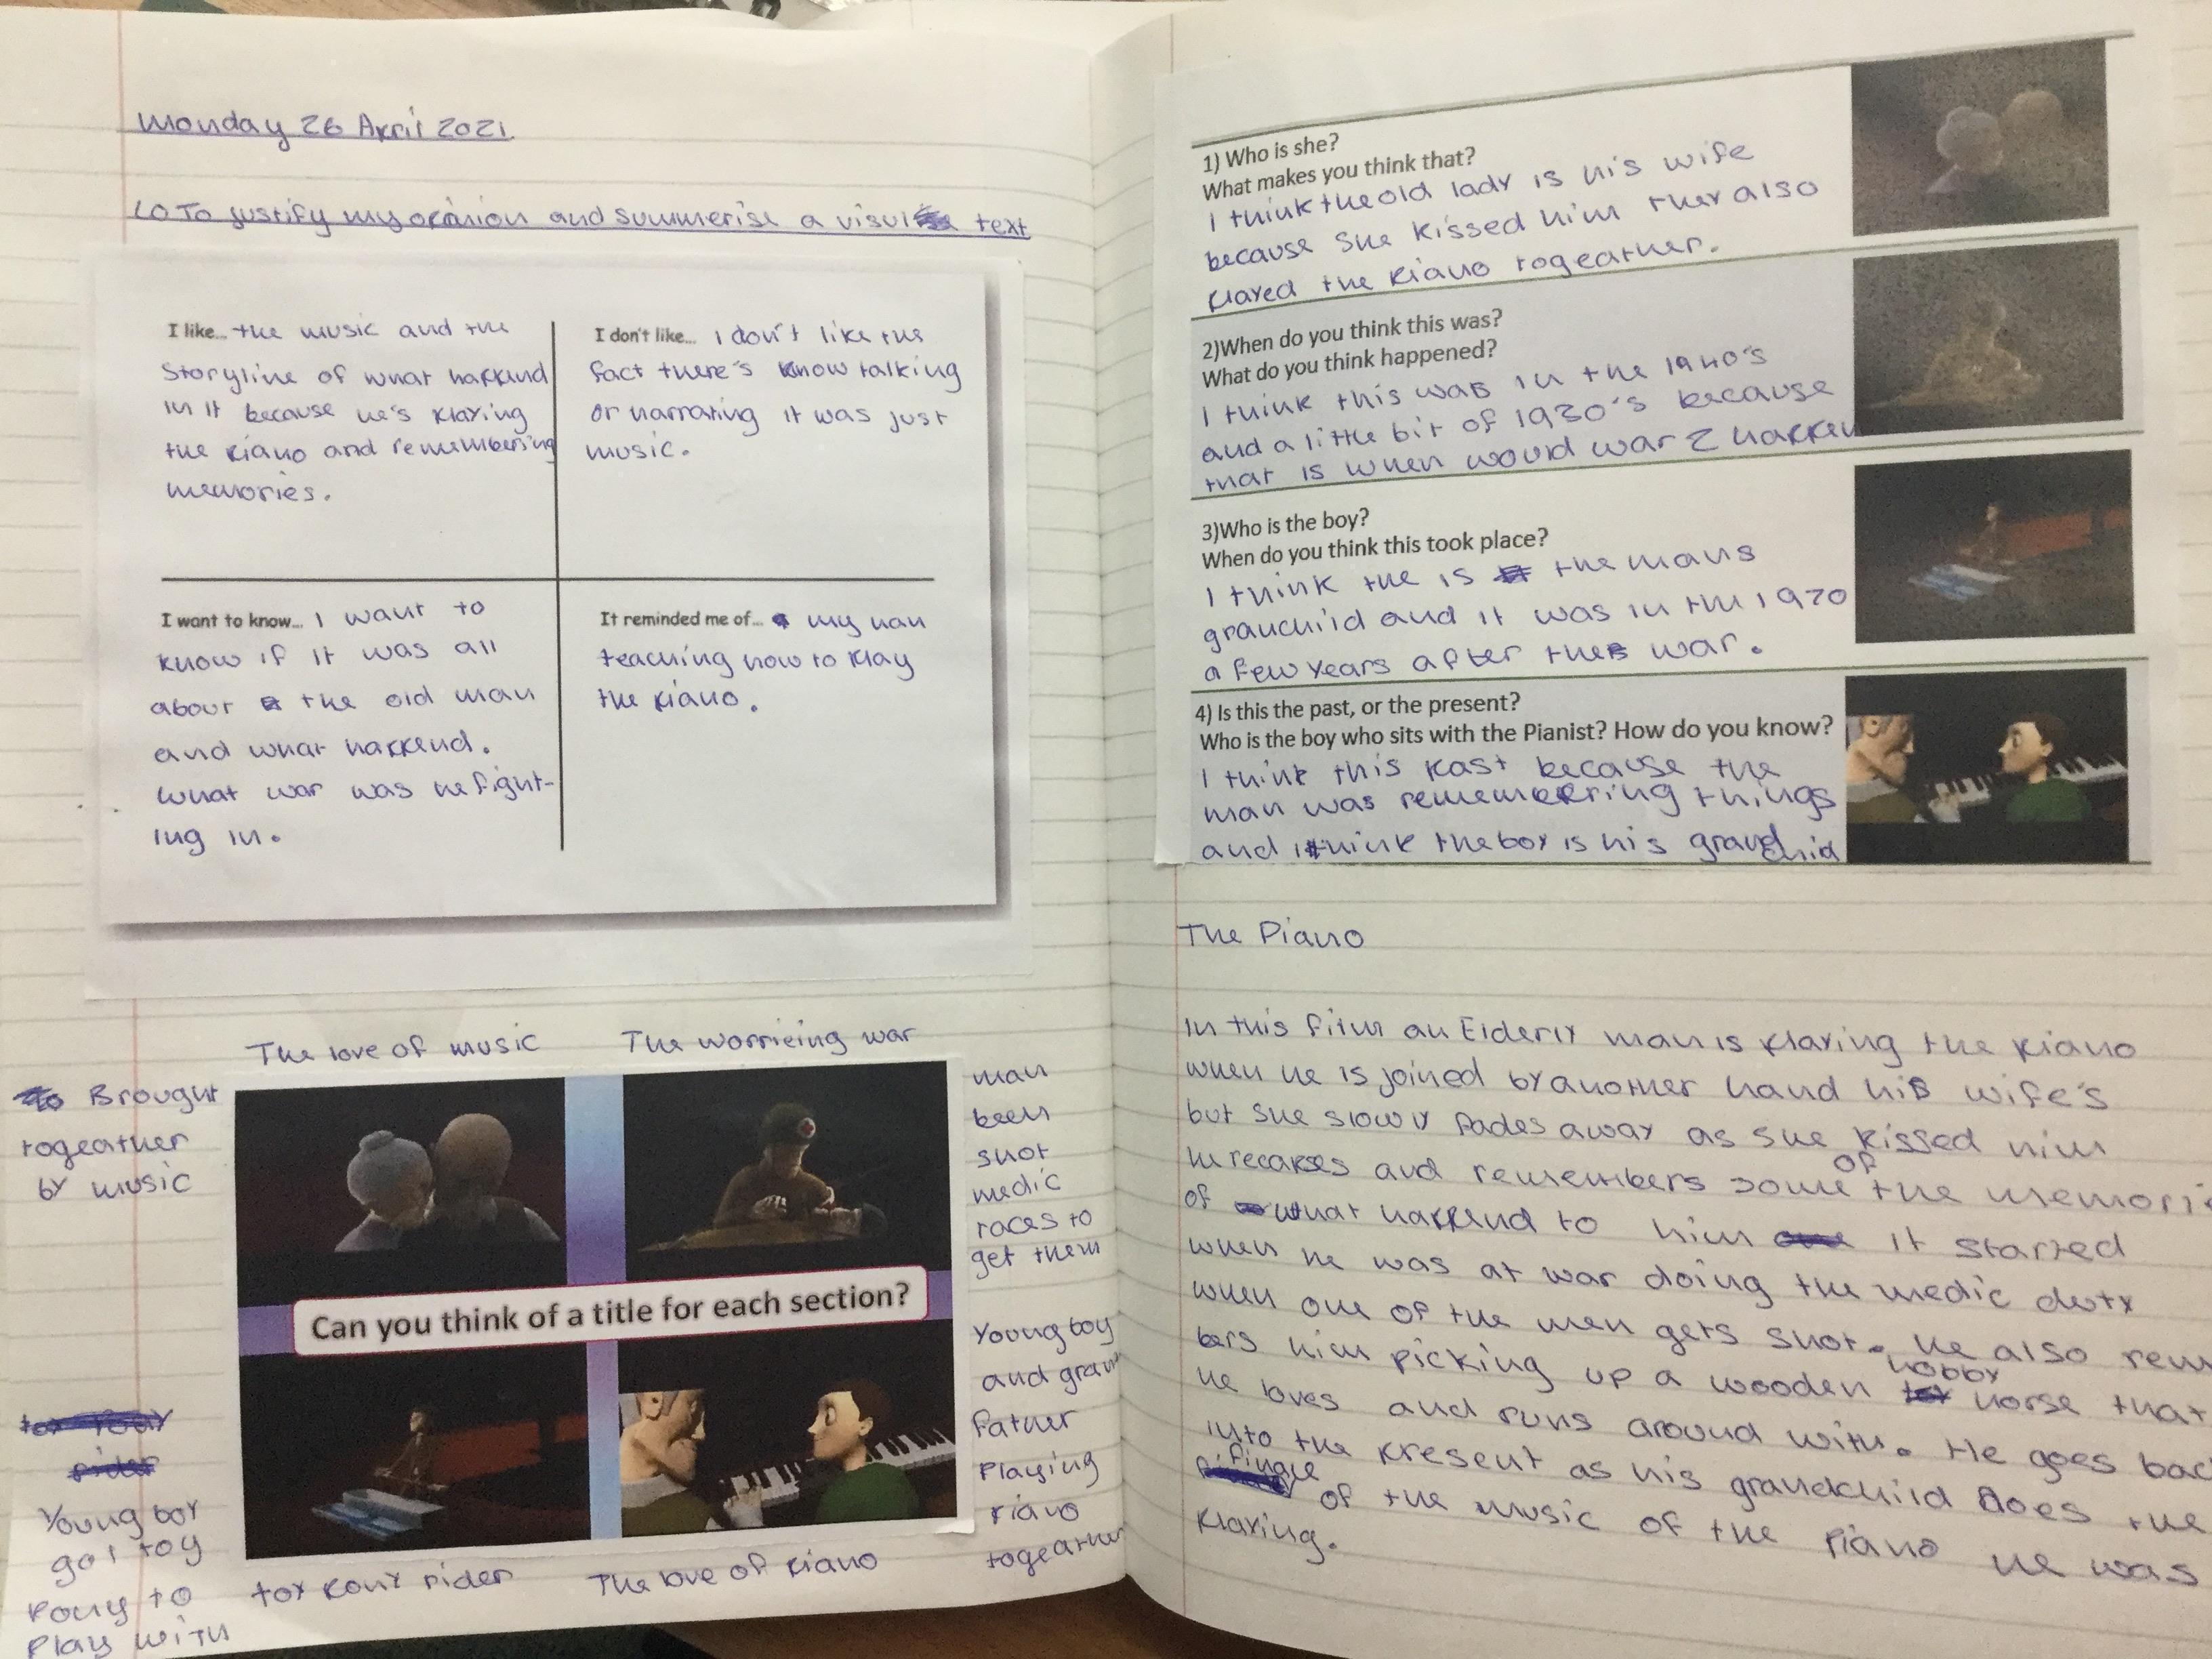 Monday 26 April 2021.
LO To justify my opinion and summerise a visul text
I like... the music and the
storyline of what happend
in it because he's playing
the piano and remembering
memories.
I don't like... I don't like the
fact there's know talking
or narrating it was just
music.
I want to know... I want to
know if it was all
about the old man
and what happend.
what war was he fight-
ing in.
It reminded me of... my nan
teaching how to play
the piano.
The love of music
The worrieing war
Brought
togeather
by music
man
been
shot
medic
races to
get them
Can you think of a title for each section?
Young boy
got toy
pony to
play with
toy pony rider
The love of piano
Young boy
and gran
father
playing
piano
togeather
1) Who is she?
What makes you think that?
I think the old lady is his wife
because she kissed him they also
played the piano togeather.
2)When do you think this was?
What do you think happened?
I think this was in the 1940's
and a little bit of 1930's because
that is when would war 2 happen
3)Who is the boy?
When do you think this took place?
I think the is the mans
granchild and it was in the 1970
a few years after the war.
4) Is this the past, or the present?
Who is the boy who sits with the Pianist? How do you know?
I think this past because the
man was remembering things
and I think the boy is his grandchild
The Piano
In this film an Elderly man is playing the piano
when he is joined by another hand his wife's
but she slowly fades away as she kissed him
he recapses and remembers some of the memori
of what happend to him it started
when he was at war doing the medic duty
when one of the men gets shot. he also rem
bers him picking up a wooden hobby horse that
he loves and runs around with. He goes bac
into the present as his grandchild does the
finale of the music of the piano he was
playing.